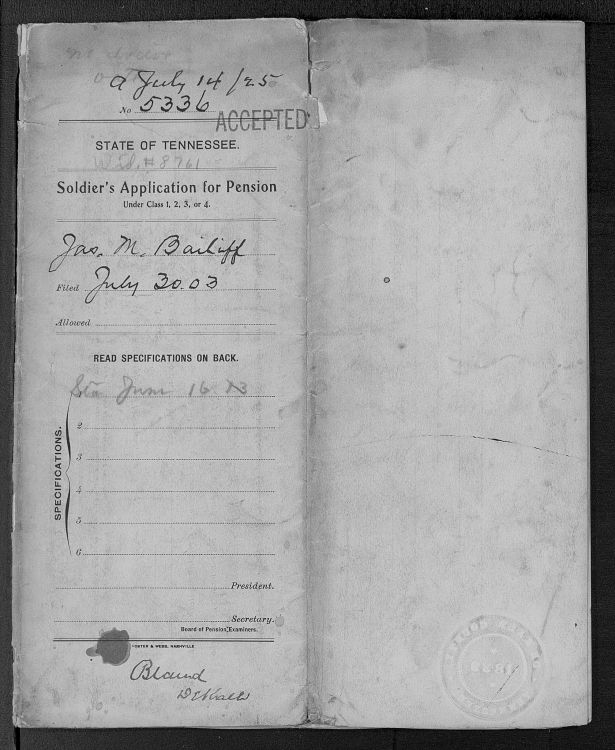 a July 14/25
No 5336
ACCEPTED
STATE OF TENNESSEE.
Wid. #8761
Soldier's Application for Pension
Under Class 1, 2, 3, or 4.
Jas. M. Bailiff
Filed July 30 03
Allowed
READ SPECIFICATIONS ON BACK.
SPECIFICATIONS.
1 June 16
2
3
4
5
6
President.
Secretary.
Board of Pension Examiners.
FOSTER & WEBB, NASHVILLE
Bland
DeKalb